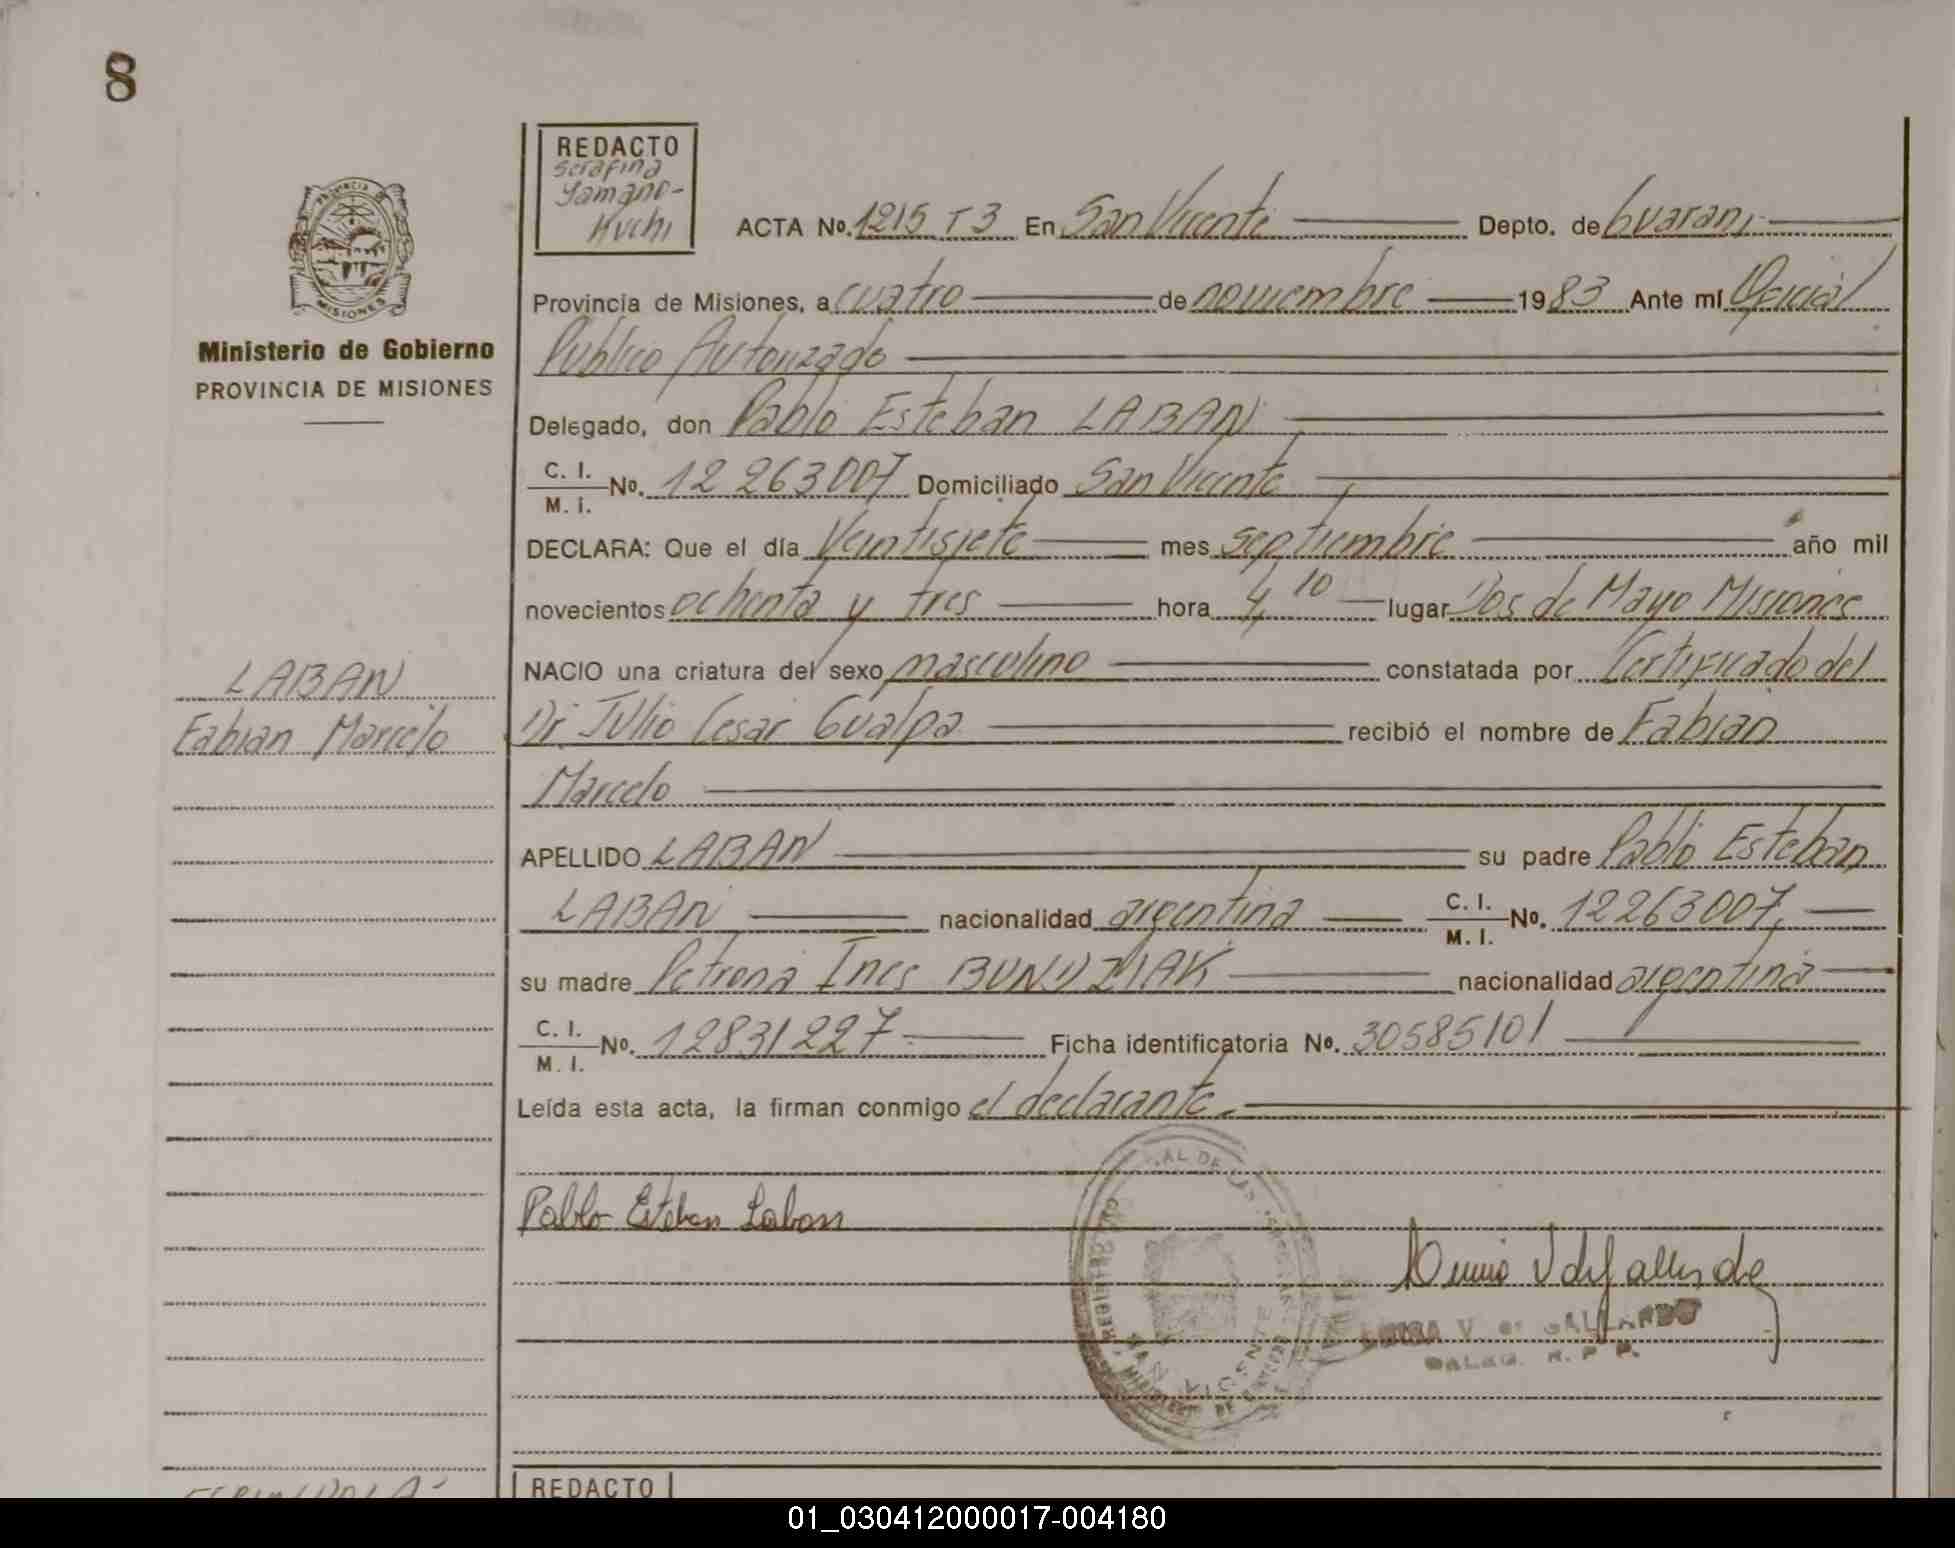 8
REDACTO
Serafina
Yamano-
Kuchi
PROVINCIA DE
MISIONES
Ministerio de Gobierno
PROVINCIA DE MISIONES
ACTA No. 1215 T3 En San Vicente Depto. de Guarani
Provincia de Misiones, a cuatro de noviembre 1983 Ante mí Oficial
Publico Autorizado
Delegado, don Pablo Esteban LABAN
C. I. / M. I. No. 12 263 007 Domiciliado San Vicente
DECLARA: Que el día Veintisiete mes septiembre año mil
novecientos ochenta y tres hora 4,10 lugar Dos de Mayo Misiones
NACIO una criatura del sexo masculino constatada por Certificado del
Dr Julio Cesar Gualpa recibió el nombre de Fabian
Marcelo
LABAN
Fabian Marcelo
APELLIDO LABAN su padre Pablo Esteban
LABAN nacionalidad argentina C. I. / M. I. No. 12263007,
su madre Petrona Ines BUNDZIAK nacionalidad argentina
C. I. / M. I. No. 12831227 Ficha identificatoria No. 30585101
Leída esta acta, la firman conmigo el declarante.
Pablo Esteban Laban
SAN VICENTE
V. de GALLARDO
REDACTO
01_030412000017-004180